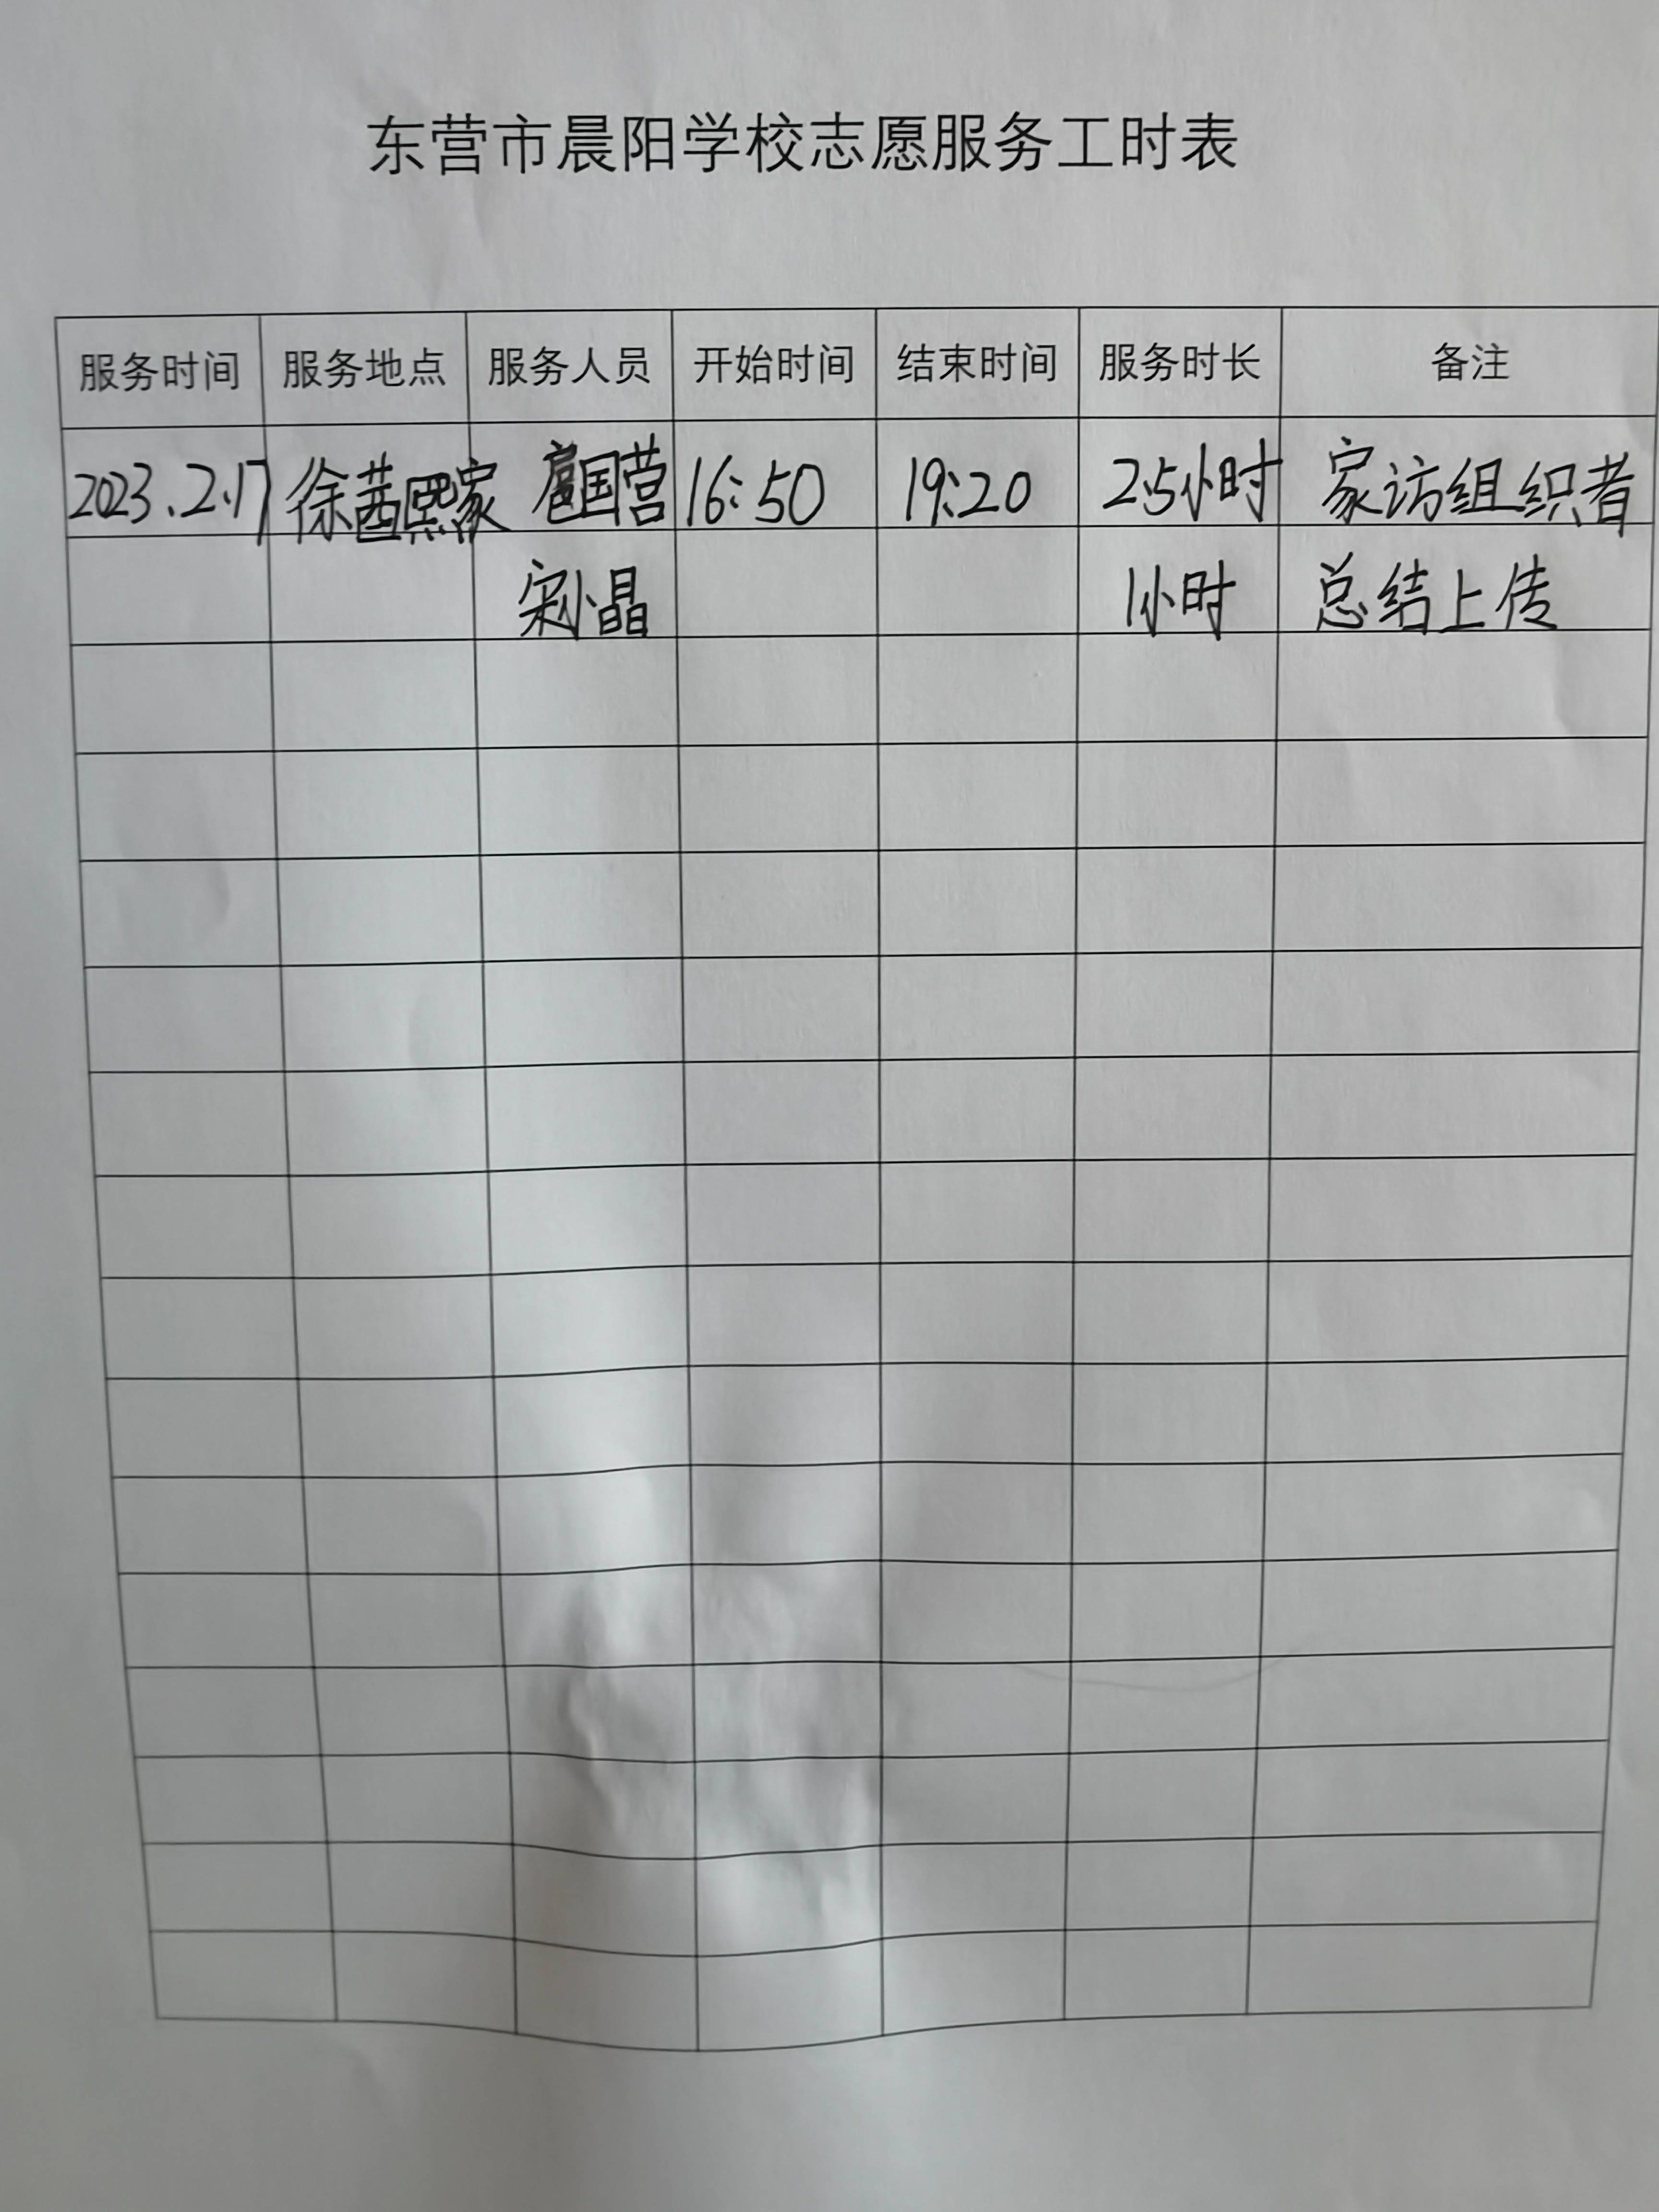 东营市晨阳学校志愿服务工时表
服务时间 服务地点 服务人员 开始时间 结束时间 服务时长 备注
2023.2.17 徐茜熙家 扈国营 16:50 19:20 2.5小时 家访组织者
宋小晶 1小时 总结上传